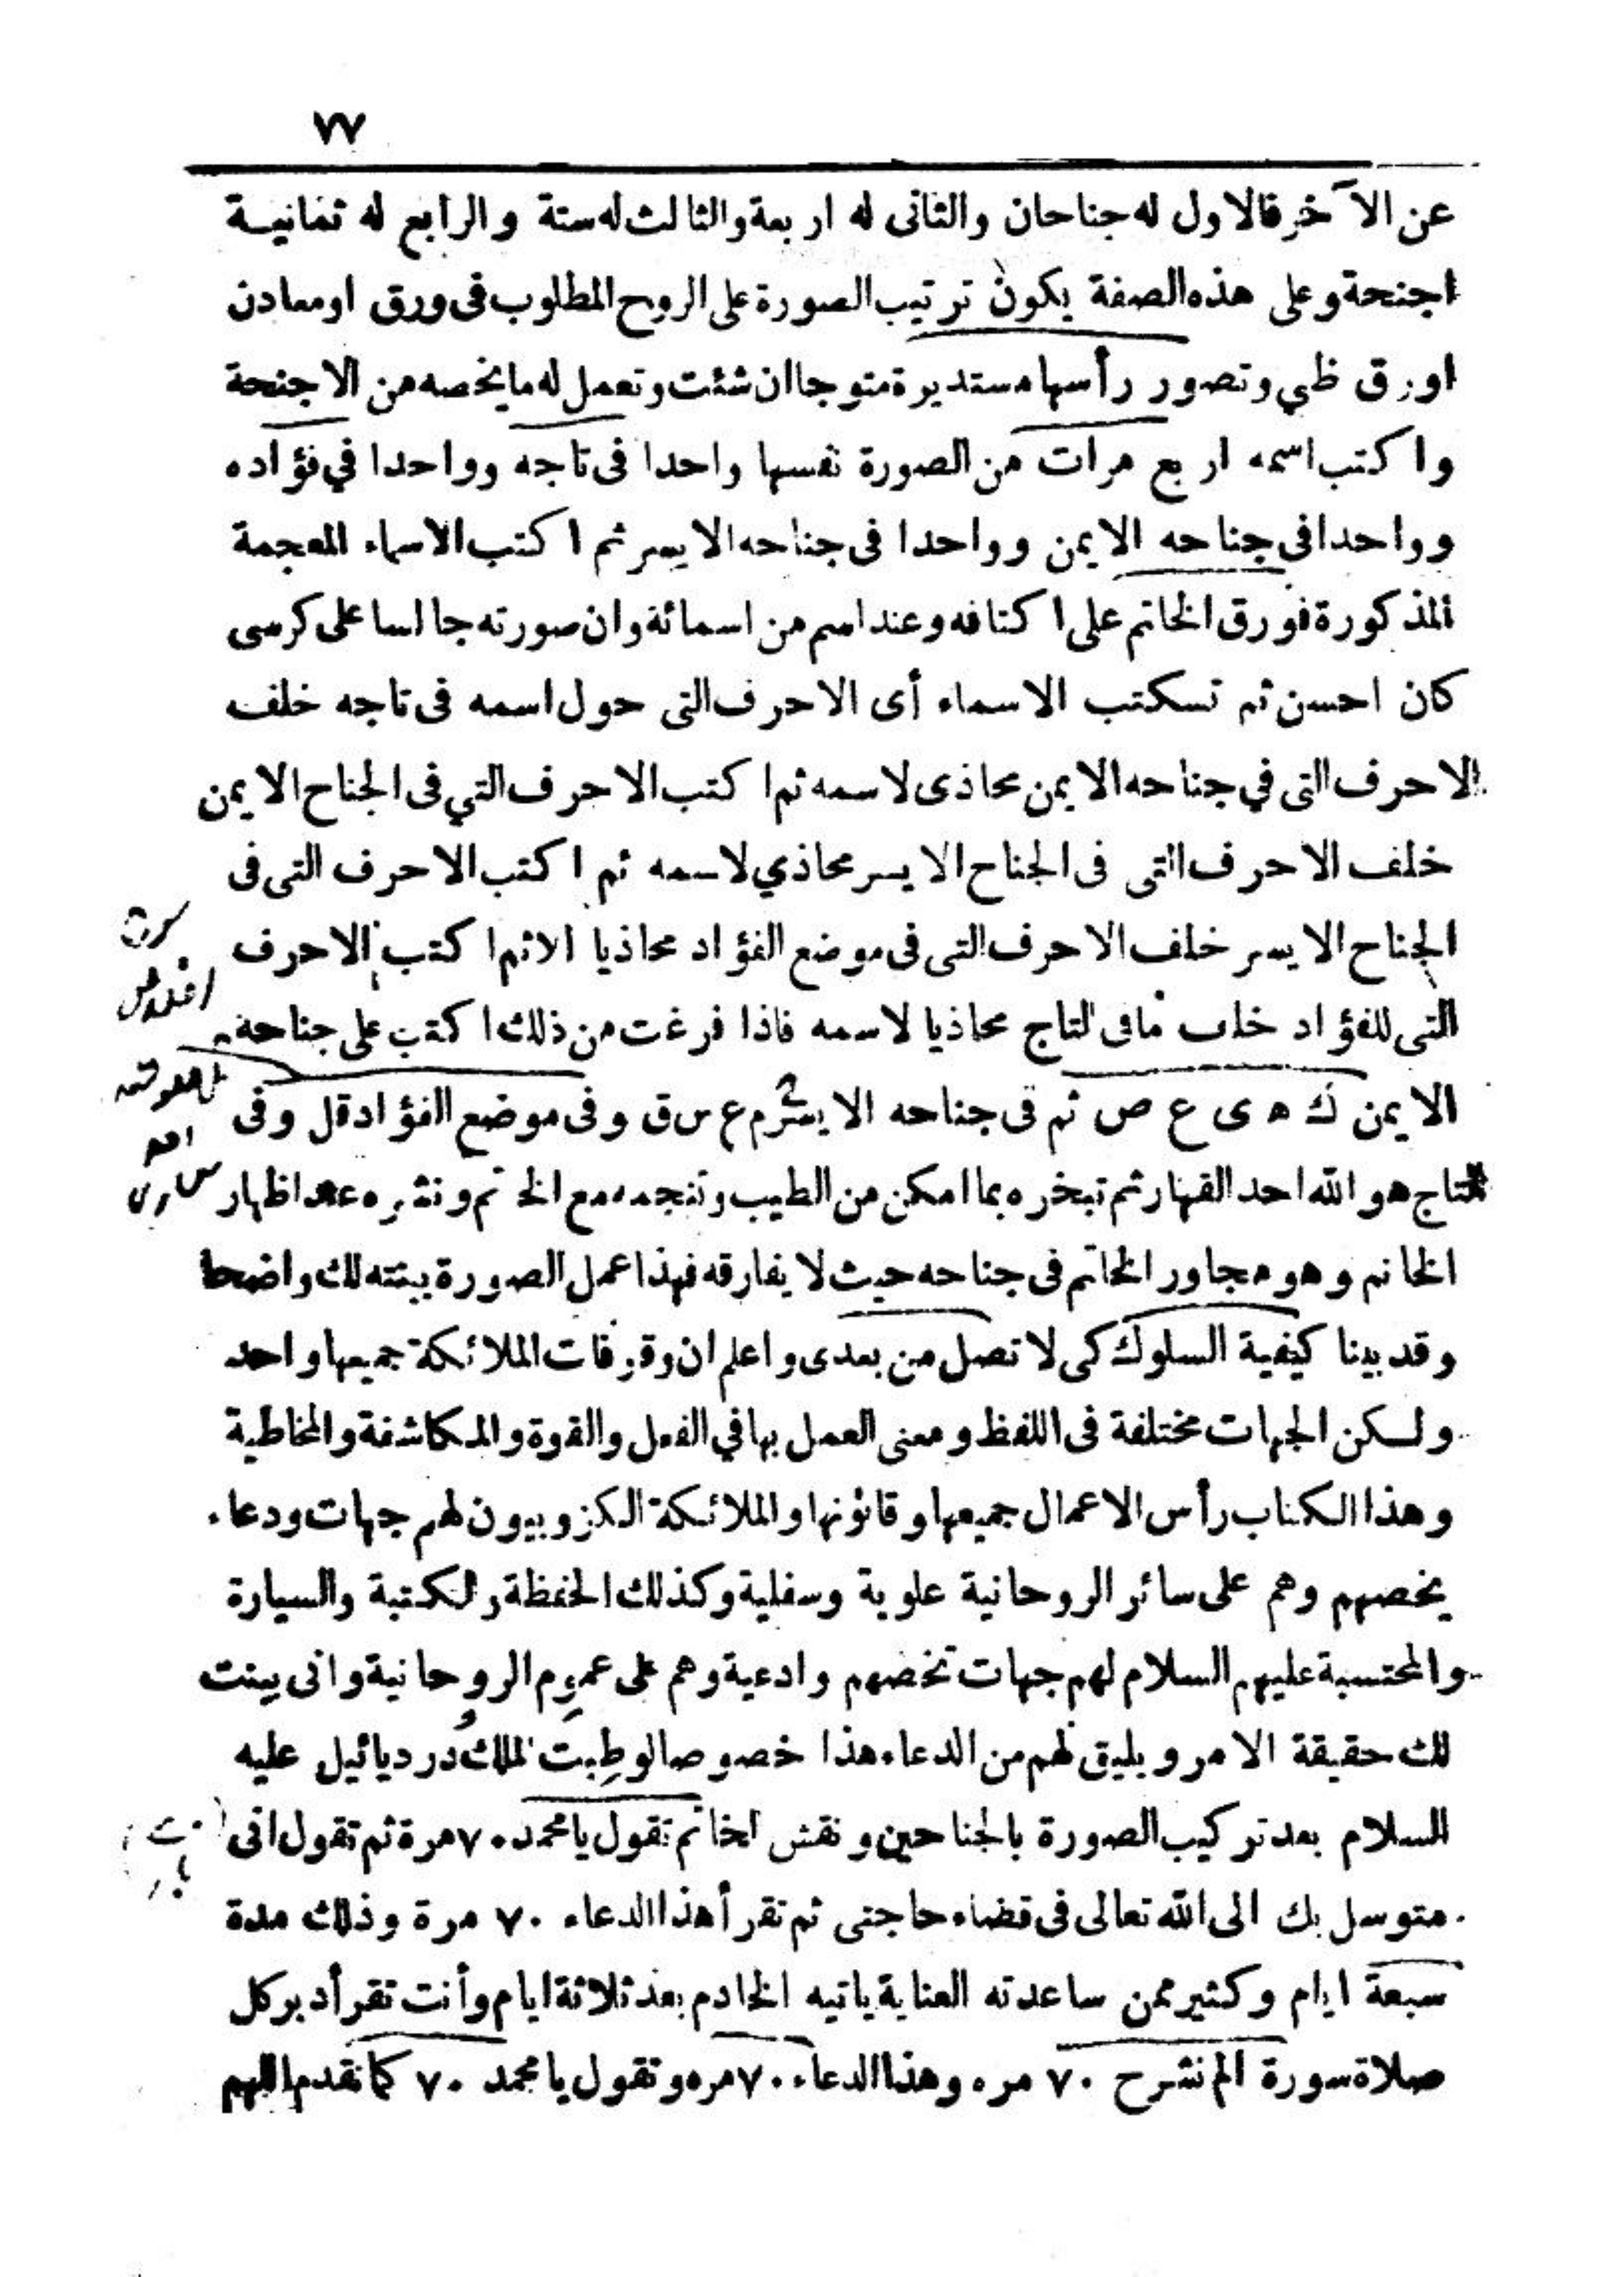 ٧٧
عن الآخر فالاول له جناحان والثانى له اربعة والثالث له ستة والرابع له ثمانية
اجنحة وعلى هذه الصفة يكون ترتيب الصورة على الروح المطلوب فى ورق او معادن
اورق ظبي وتصور رأسها مستديرة متوجا ان شئت وتعمل له ما يخصه من الاجنحة
واكتب اسمه اربع مرات من الصورة نفسها واحدا فى تاجه وواحدا في فؤاده
وواحدا فى جناحه الايمن وواحدا فى جناحه الايسر ثم اكتب الاسماء المعجمة
المذكورة فورق الخاتم على اكتافه وعند اسم من اسمائة وان صورته جالسا على كرسى
كان احسن ثم تسكتب الاسماء أى الاحرف التى حول اسمه فى تاجه خلف
الاحرف التى في جناحه الايمن محاذى لاسمه ثم اكتب الاحرف التي فى الجناح الايمن
خلف الاحرف التى فى الجناح الايسر محاذي لاسمه ثم اكتب الاحرف التى فى
الجناح الايسر خلف الاحرف التى فى موضع الفؤاد محاذيا الاثم اكتب الاحرف
التى للفؤاد خلف مافى لتاج محاذيا لاسمه فاذا فرغت من ذلك اكتب على جناحه
الايمن ك ه ى ع ص ثم فى جناحه الايسر م ع س ق وفى موضع الفؤاد قل وفى
التاج هو الله احد القهار ثم تبخره بما امكن من الطيب وتنجمه مع الخ تم ونشره عند اظهار
الخاتم وهو مجاور الخاتم فى جناحه حيث لا يفارقه فهذا عمل الصورة بينته لك واضحا
وقد بينا كيفية السلوك كى لا تصل من بعدى واعلم ان وقوفات الملائكة جميعها واحد
ولسكن الجهات مختلفة فى اللفظ ومعنى العمل بها في الفعل والقوة والمكاشفة والمخاطبة
وهذا الكتاب رأس الاعمال جميعها وقانونها والملائكة الكزوبيون لهم جهات ودعاء
يخصهم وهم على سائر الروحانية علوية وسفلية وكذلك الحفظة ولكتبة والسيارة
والمحتسبة عليهم السلام لهم جهات تخصهم وادعية وهم على عموم الروحانية وانى بينت
لك حقيقة الامر ويليق لهم من الدعاء هذا خصوصا لوطبت الملك دردیائیل عليه
السلام بعد تركيب الصورة بالجناحين ونقش الخاتم تقول يا محمد ٧٠ مرة ثم تقول انى
متوسل بك الى الله تعالى فى قضاء حاجتى ثم تقرأ هذا الدعاء ٧٠ مرة وذلك مدة
سبعة ايام وكثير ممن ساعدته العناية ياتيه الخادم بعد ثلاثة ايام وأنت تقرأ دبر كل
صلاة سورة الم نشرح ٧٠ مره وهذا الدعاء ٧٠ مره وتقول يا محمد ٧٠ كما تقدم اللهم